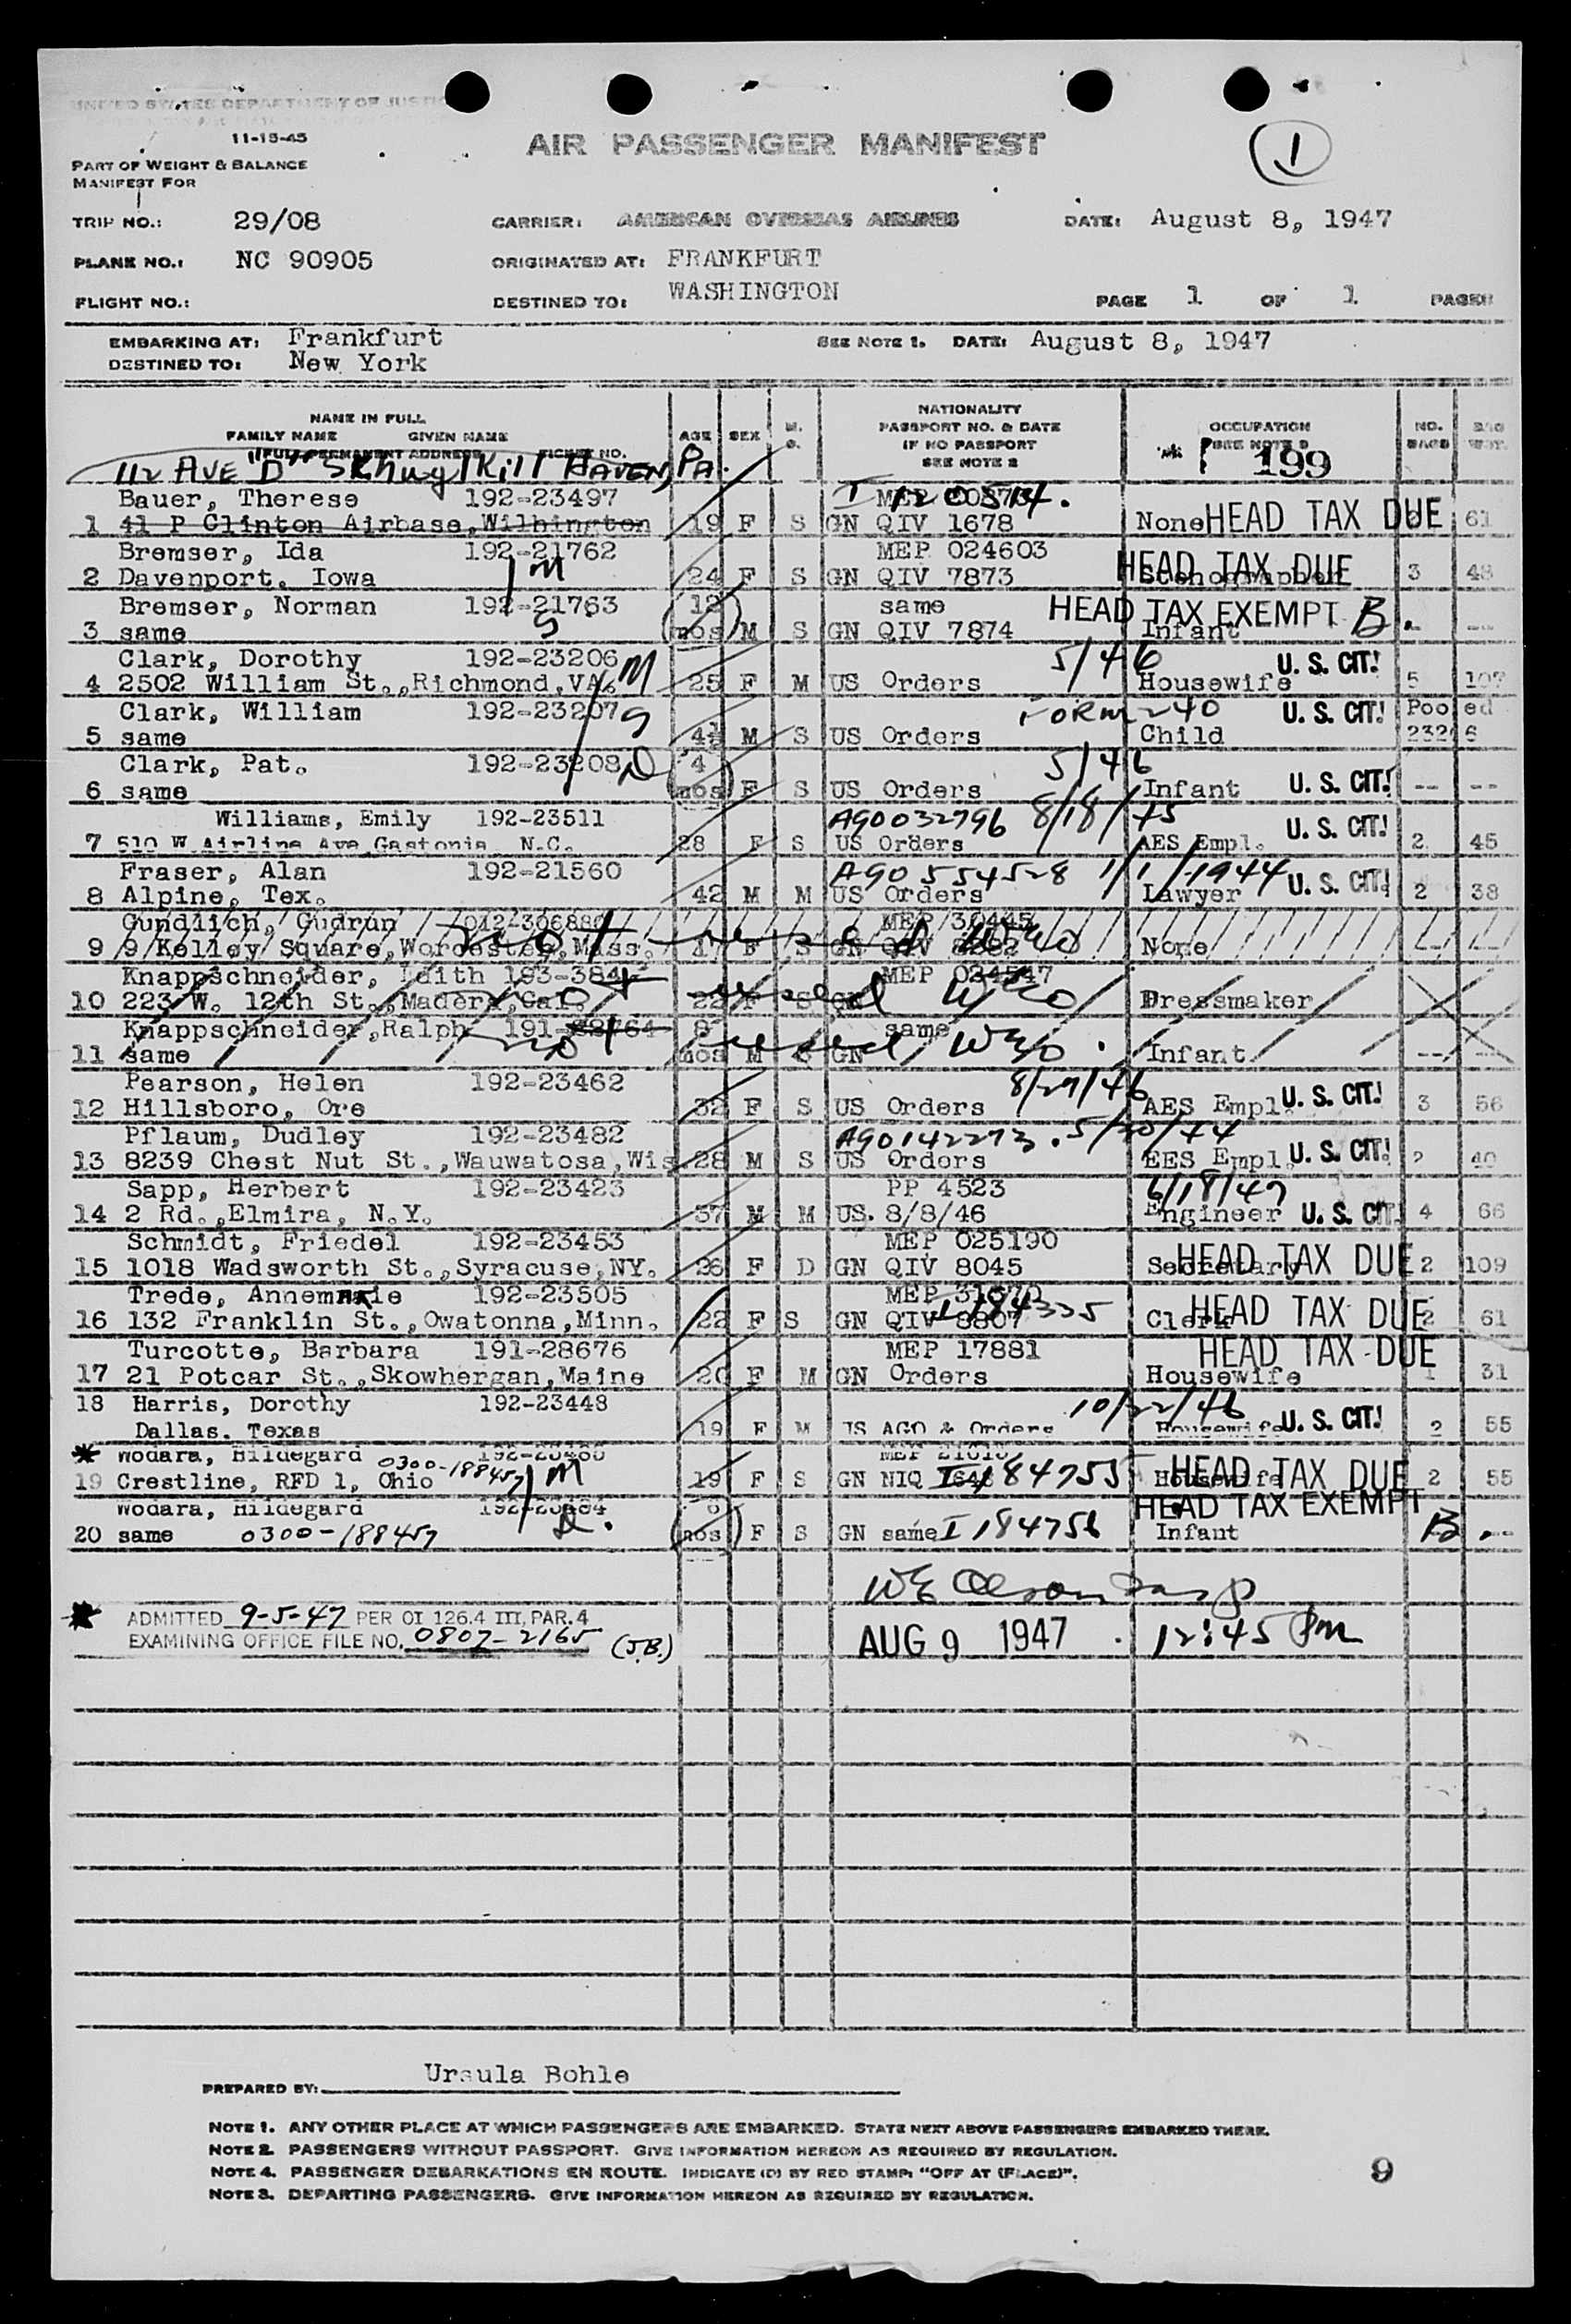 UNITED STATES DEPARTMENT OF JUSTICE
11-15-45
AIR PASSENGER MANIFEST
1
PART OF WEIGHT & BALANCE
MANIFEST FOR
TRIP NO.: 29/08 CARRIER: AMERICAN OVERSEAS AIRLINES DATE: August 8, 1947
PLANE NO.: NC 90905 ORIGINATED AT: FRANKFURT
FLIGHT NO.: DESTINED TO: WASHINGTON PAGE 1 OF 1 PAGES
EMBARKING AT: Frankfurt SEE NOTE 1. DATE: August 8, 1947
DESTINED TO: New York
NAME IN FULL
FAMILY NAME GIVEN NAME
FULL PERMANENT ADDRESS TICKET NO.
AGE SEX M. S.
NATIONALITY
PASSPORT NO. & DATE
IF NO PASSPORT
SEE NOTE 2
OCCUPATION
SEE NOTE
NO. BAGS BAG WGT.
199
112 AVE "D" Skhuylkill HAVEN, PA.
Bauer, Therese 192-23497 MEP
1 41 P Clinton Airbase,Wilhington 19 F S GN QIV 1678 None HEAD TAX DUE 61
Bremser, Ida 192-21762 M MEP 024603 HEAD TAX DUE
2 Davenport, Iowa 24 F S GN QIV 7873 3 48
Bremser, Norman 192-21763 S 12 same HEAD TAX EXEMPT B.
3 same mos M S GN QIV 7874 Infant -- --
Clark, Dorothy 192-23206 M 5/46 U. S. CIT!
4 2502 William St.,Richmond,VA. 25 F M US Orders Housewife 5 107
Clark, William 192-23207 S FORM 240 U. S. CIT! Pooled
5 same 4½ M S US Orders Child 23206
Clark, Pat. 192-23208 D 4 5/46
6 same mos F S US Orders Infant U. S. CIT! -- --
Williams, Emily 192-23511 AGO032796 8/18/45 U. S. CIT!
7 510 W Airline Ave Gastonia N.C. 28 F S US Orders AES Empl. 2 45
Fraser, Alan 192-21560 AGO 554528 1/1/1944 U. S. CIT!
8 Alpine, Tex. 42 M M US Orders Lawyer 2 38
Gundlich, Gudrun 012-306880 MEP 30445
9 9 Kelley Square,Worcester,Mass. 17 F S GN QIV 8282 None -- --
Knappschneider, Edith 193-384 MEP 024547
10 223 W. 12th St.,Madera,Cal. 22 F S GN Dressmaker
Knappschneider,Ralph 191-28764 8 same
11 same mos M S GN Infant -- --
Pearson, Helen 192-23462 8/29/46
12 Hillsboro, Ore 32 F S US Orders AES Empl. U. S. CIT! 3 56
Pflaum, Dudley 192-23482 AGO142273. 5/20/44
13 8239 Chest Nut St.,Wauwatosa,Wis 28 M S US Orders EES Empl. U. S. CIT! 2 40
Sapp, Herbert 192-23423 PP 4523 6/18/47
14 2 Rd.,Elmira, N.Y. 37 M M US. 8/8/46 Engineer U. S. CIT! 4 66
Schmidt, Friedel 192-23453 MEP 025190
15 1018 Wadsworth St.,Syracuse,NY. 26 F D GN QIV 8045 Secretary HEAD TAX DUE 2 109
Trede, Annemarie 192-23505 MEP 31070 I 184335
16 132 Franklin St.,Owatonna,Minn. 22 F S GN QIV 8807 Clerk HEAD TAX DUE 2 61
Turcotte, Barbara 191-28676 MEP 17881 HEAD TAX DUE
17 21 Potcar St.,Skowhergan,Maine 20 F M GN Orders Housewife 1 31
18 Harris, Dorothy 192-23448 10/22/46
Dallas. Texas 19 F M US AGO & Orders Housewife U. S. CIT! 2 55
* Wodara, Hildegard M 0300-188457
19 Crestline, RFD 1, Ohio 19 F S GN NIQ I 184755 Housewife HEAD TAX DUE 2 55
Wodara, Hildegard D. HEAD TAX EXEMPT
20 same 0300-188457 mos F S GN same I 184756 Infant B. --
* ADMITTED 9-5-47 PER OI 126.4 III, PAR. 4
EXAMINING OFFICE FILE NO. 0807-2165 (J.B.)
AUG 9 1947 12:45 Pm
PREPARED BY: Ursula Bohle
NOTE 1. ANY OTHER PLACE AT WHICH PASSENGERS ARE EMBARKED. STATE NEXT ABOVE PASSENGERS EMBARKED THERE.
NOTE 2. PASSENGERS WITHOUT PASSPORT. GIVE INFORMATION HEREON AS REQUIRED BY REGULATION.
NOTE 4. PASSENGER DEBARKATIONS EN ROUTE. INDICATE (D) BY RED STAMP: "OFF AT (PLACE)".
NOTE 3. DEPARTING PASSENGERS. GIVE INFORMATION HEREON AS REQUIRED BY REGULATION.
9